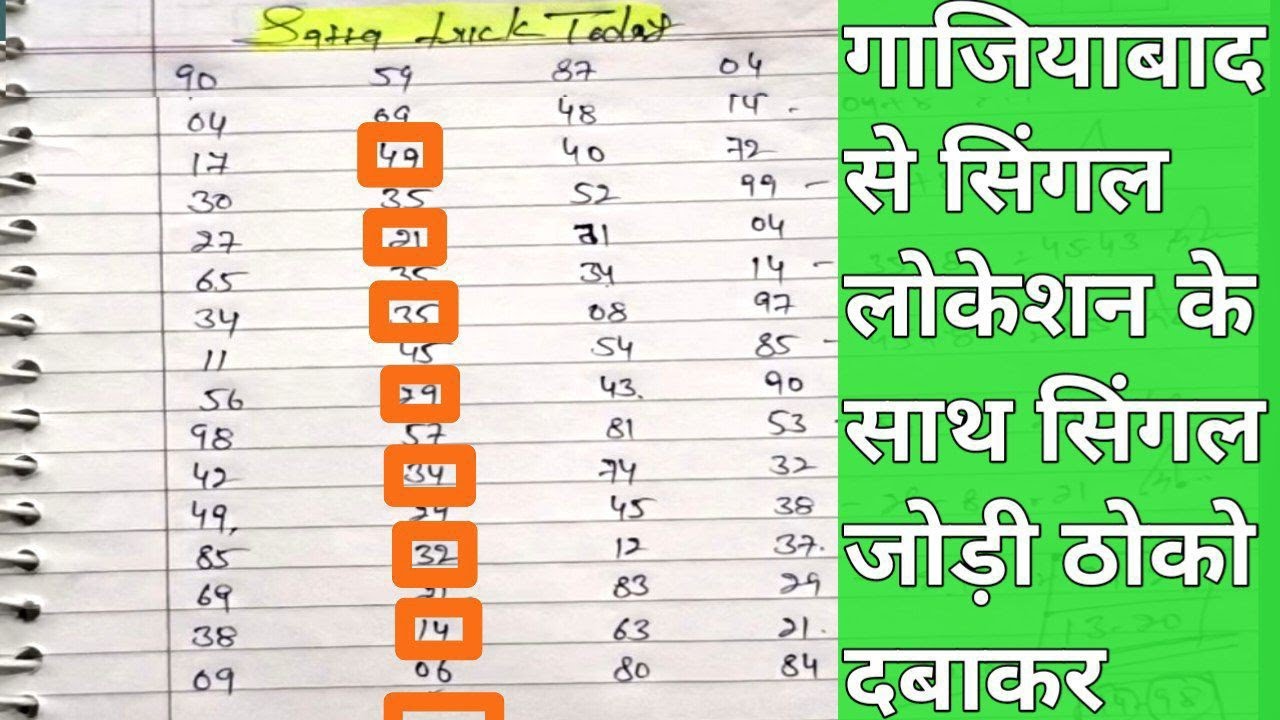 Satta trick Today
90 59 87 04
04 69 48 14 -
17 49 40 72
30 35 52 99 -
27 21 71 04
65 35 34 14 -
34 35 08 97
11 45 54 85 -
56 79 43. 90
98 57 81 53
42 34 74 32
49, 29 45 38
85 32 12 37.
69 21 83 29
38 14 63 21.
09 06 80 84
गाजियाबाद
से सिंगल
लोकेशन के
साथ सिंगल
जोड़ी ठोको
दबाकर